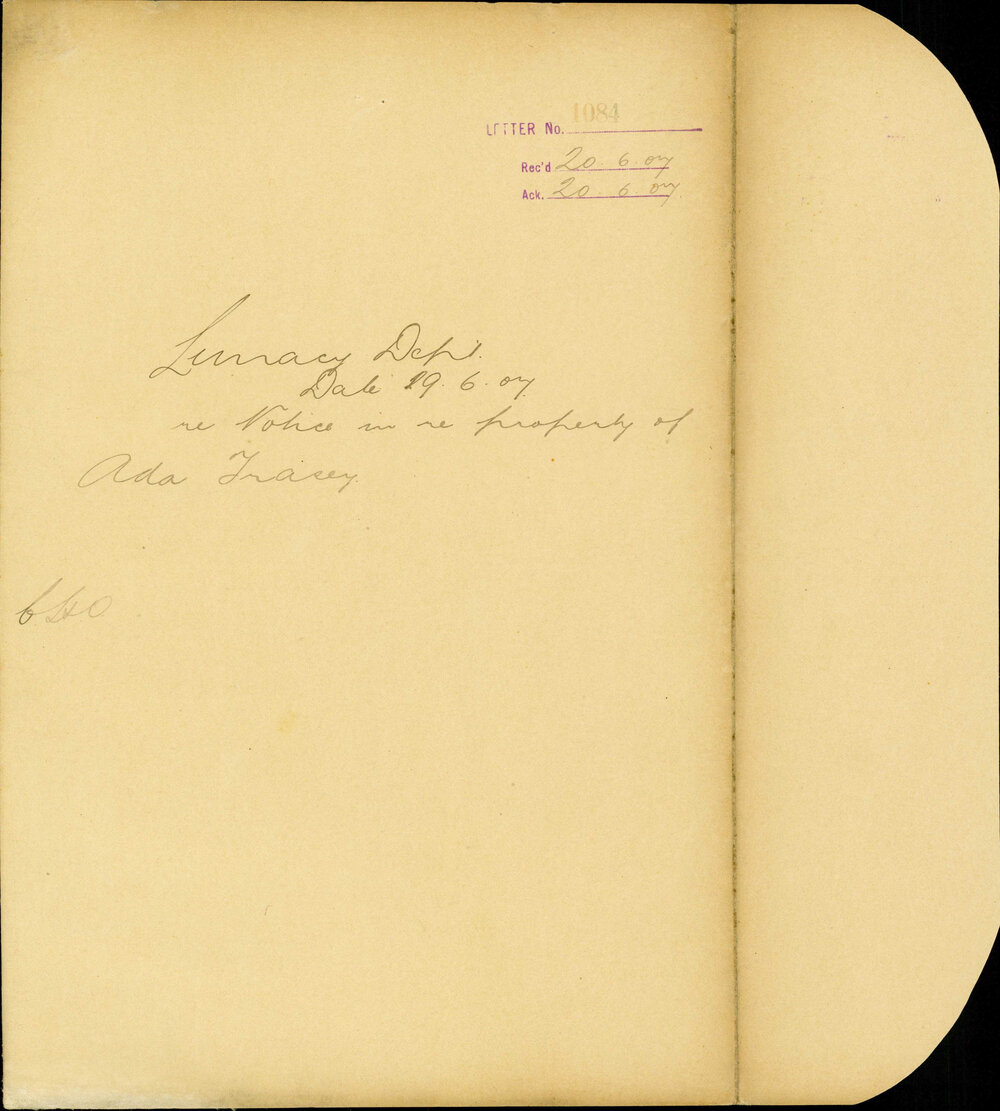 1084
LETTER No.
Rec'd 20. 6. 07
Ack. 20. 6. 07
Lunacy Dept.
Date 19. 6. 07
re Notice in re property of
Ada Tracey